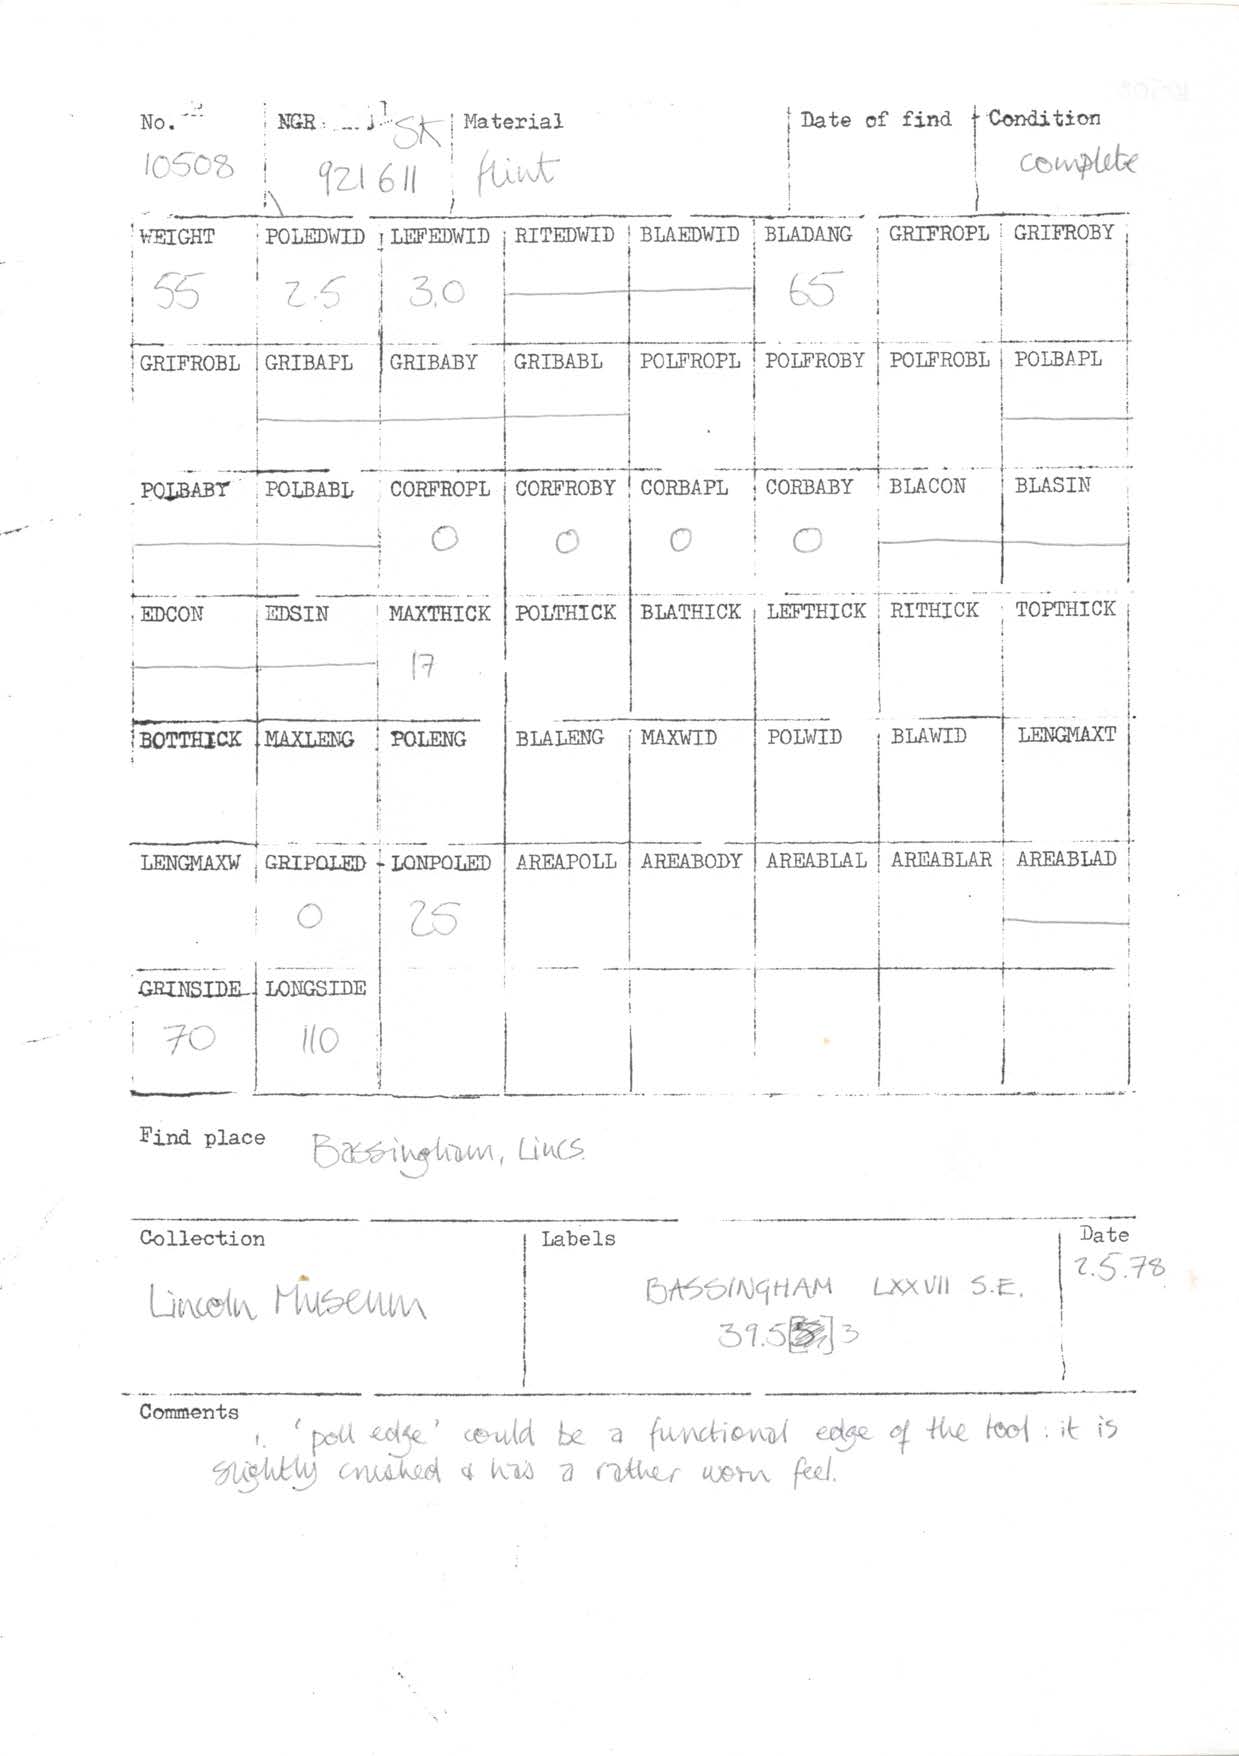 No. NGR SK Material Date of find Condition
10508 921611 flint complete
WEIGHT POLEDWID LEFEDWID RITEDWID BLAEDWID BLADANG GRIFROPL GRIFROBY
55 2.5 3.0 65
GRIFROBL GRIBAPL GRIBABY GRIBABL POLFROPL POLFROBY POLFROBL POLBAPL
POLBABY POLBABL CORFROPL CORFROBY CORBAPL CORBABY BLACON BLASIN
0 0 0 0
EDCON EDSIN MAXTHICK POLTHICK BLATHICK LEFTHICK RITHICK TOPTHICK
17
BOTTHICK MAXLENG POLENG BLALENG MAXWID POLWID BLAWID LENGMAXT
LENGMAXW GRIPOLED LONPOLED AREAPOLL AREABODY AREABLAL AREABLAR AREABLAD
0 25
GRINSIDE LONGSIDE
70 110
Find place Bassingham, Lincs.
Collection Labels Date
Lincoln Museum BASSINGHAM LXXVII S.E. 2.5.78
39.5 3
Comments
1. 'poll edge' could be a functional edge of the tool : it is
slightly crushed & has a rather worn feel.